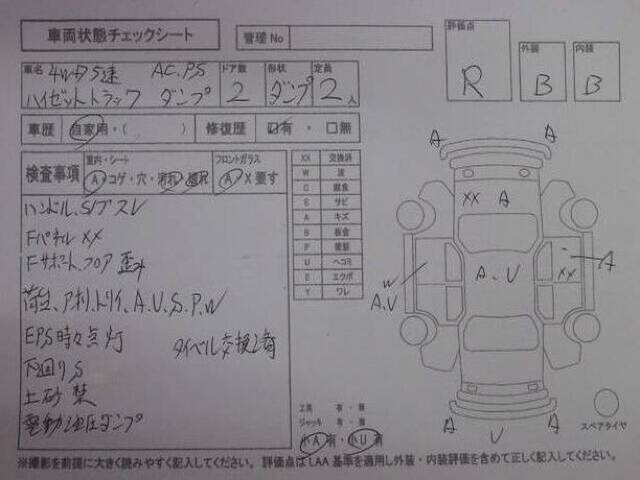 車両状態チェックシート
管理No
評価点 R
外装 B
内装 B
車名 4WD 5速 AC.PS
ハイゼットトラック ダンプ
ドア数 2
形状 ダンプ
定員 2人
車歴 自家用・( )
修復歴 有・□無
検査事項
室内・シート A コゲ・穴・汚れ
フロントガラス A X要す
ハンドル、S/ブスレ
Fパネル XX
Fサポート、フロア 歪み
荷台、アオリ、トリイ、A.U.S.P.W
EPS時々点灯
タイベル交換
下回りS
土砂禁
電動油圧ダンプ
XX 交換済
W 波
C 腐食
S サビ
A キズ
B 板金
P 塗装
U ヘコミ
E エクボ
Y ワレ
A
A
XX A
A
XX
W
A.V
A.U
A
U
A
工具 有・無
ジャッキ 有・無
小A有・小U有
スペアタイヤ
※撮影を前提に大きく読みやすく記入してください。評価点はLAA基準を適用し外装・内装評価を含めて正しく記入してください。